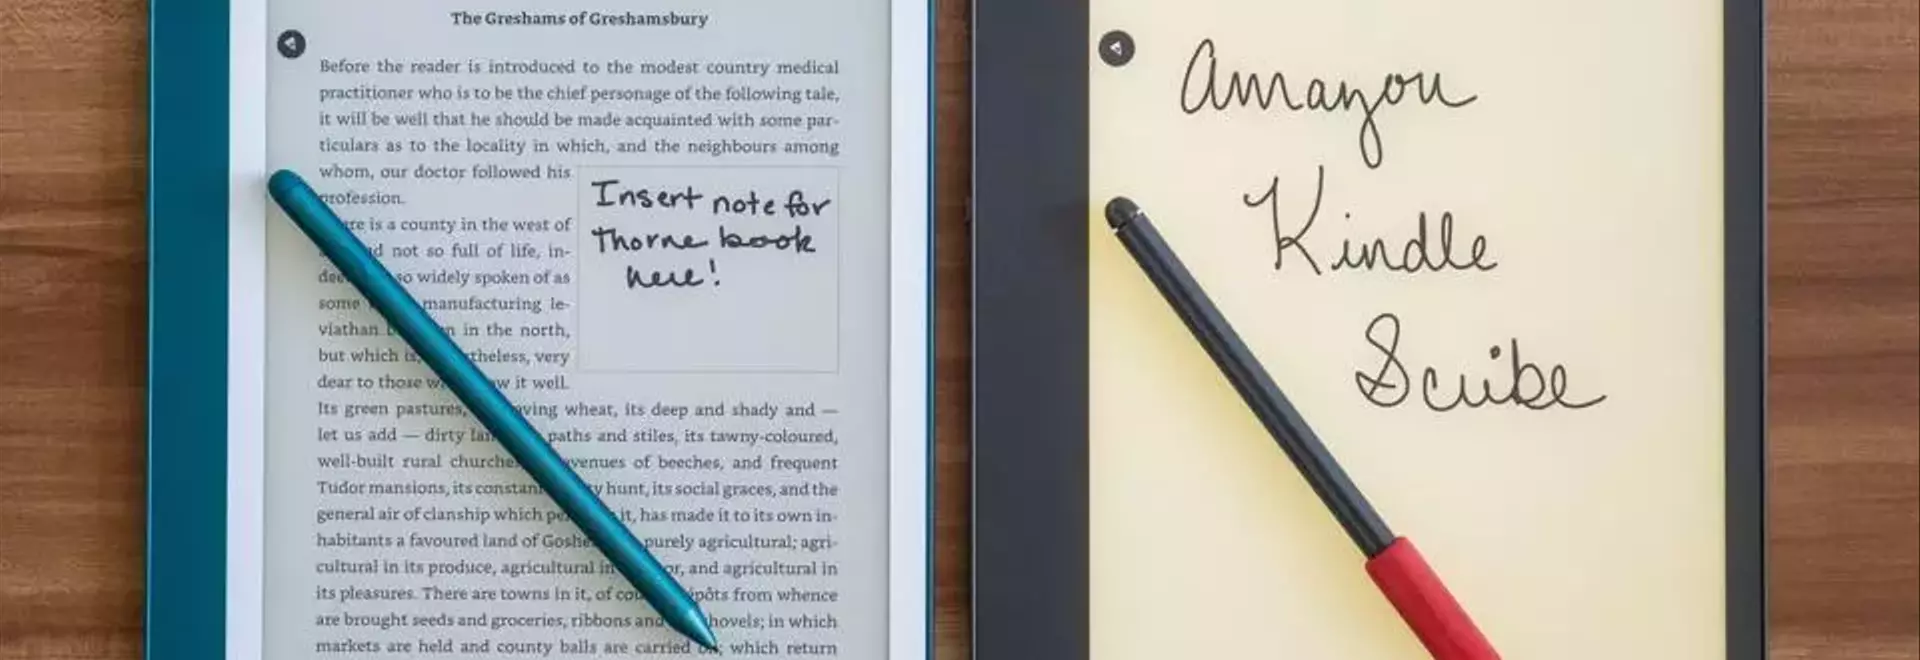 The Greshams of Greshamsbury
Before the reader is introduced to the modest country medical
practitioner who is to be the chief personage of the following tale,
it will be well that he should be made acquainted with some par-
ticulars as to the locality in which, and the neighbours among
whom, our doctor followed his
profession.
is a county in the west of
not so full of life, in-
so widely spoken of as
some manufacturing le-
viathan in the north,
but which is, very
dear to those it well.
Its green pastures, its deep and shady and —
let us add — dirty paths and stiles, its tawny-coloured,
well-built rural of beeches, and frequent
Tudor mansions, its hunt, its social graces, and the
general air of clanship which it, has made it to its own in-
habitants a favoured land of purely agricultural; agri-
cultural in its produce, agricultural in and agricultural in
its pleasures. There are towns in it, of from whence
are brought seeds and groceries, ribbons and in which
markets are held and county balls are carried which return
Insert note for
Thorne book
here!
Amazon
Kindle
Scribe